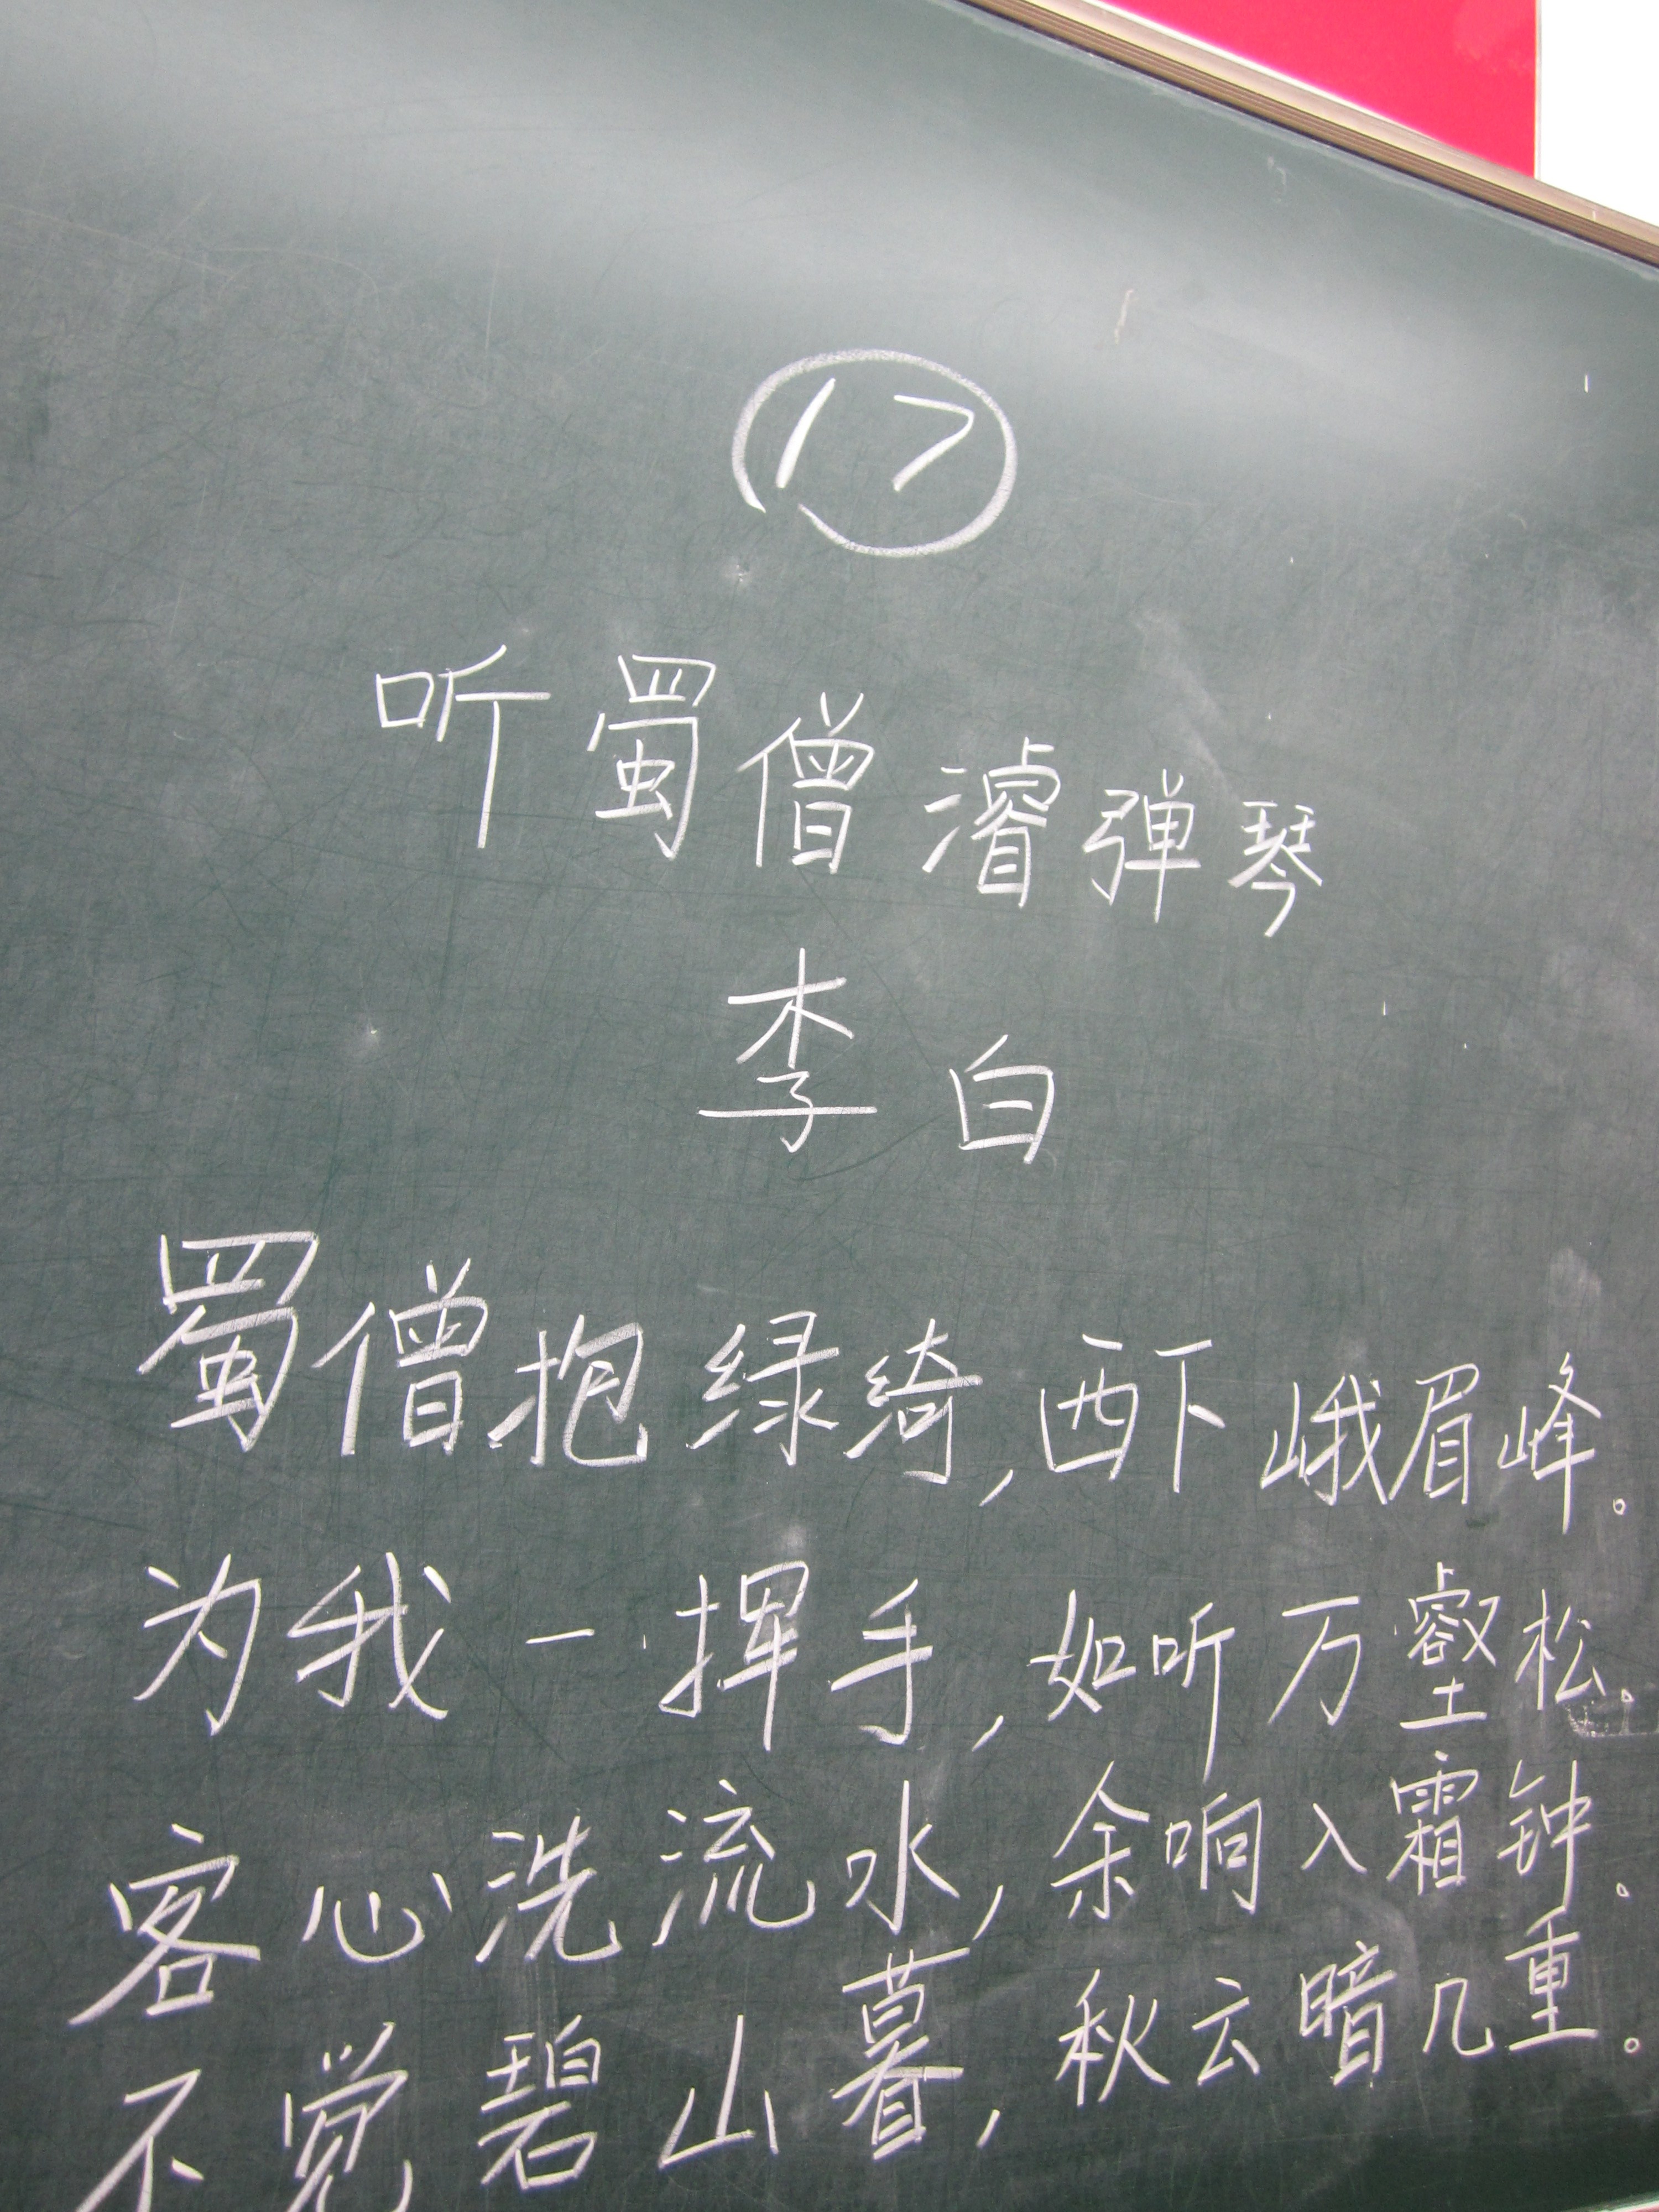 17
听蜀僧濬弹琴
李白
蜀僧抱绿绮,西下峨眉峰。
为我一挥手,如听万壑松。
客心洗流水,余响入霜钟。
不觉碧山暮,秋云暗几重。